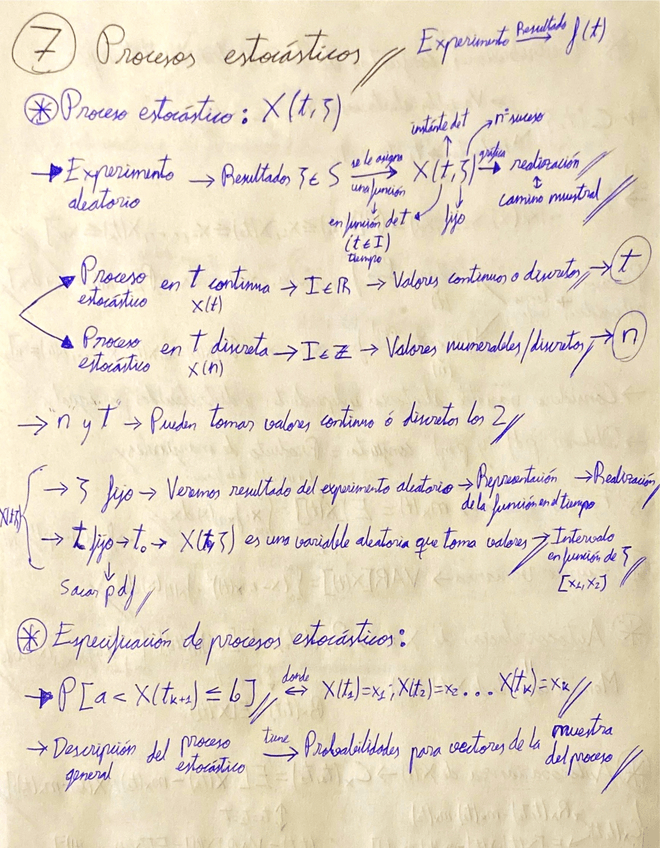 7 Procesos estocásticos // Experimento Resultado→ f(t)
⊛ Proceso estocástico: X(t,ξ)
instante de t nº suceso
→ Experimento aleatorio → Resultados ξ∈S se le asigna una función→ X(t,ξ) gráfica→ realización
↕
camino muestral //
en función de t fijo
(t∈I)
tiempo
Proceso estocástico en t continua → I∈ℝ → Valores continuos o discretos // → t
X(t)
Proceso estocástico en t discreta → I∈ℤ → Valores numerables/discretos // → n
X(n)
→ "n y t" → Pueden tomar valores continuo ó discretos los 2 //
X(t,ξ) { → ξ fijo → Veremos resultado del experimento aleatorio → Representación de la función en el tiempo → Realización //
→ t fijo → t₀ → X(t₀,ξ) es una variable aleatoria que toma valores → Intervalo en función de ξ
↓
Sacar pdf // [x₁,x₂] //
⊛ Especificación de procesos estocásticos:
→ P[a < X(tₖ₊₁) ≤ b] // donde ↔ X(t₁)=x₁; X(t₂)=x₂ ... X(tₖ)=xₖ //
→ Descripción general del proceso estocástico tiene→ Probabilidades para vectores de la muestra del proceso //